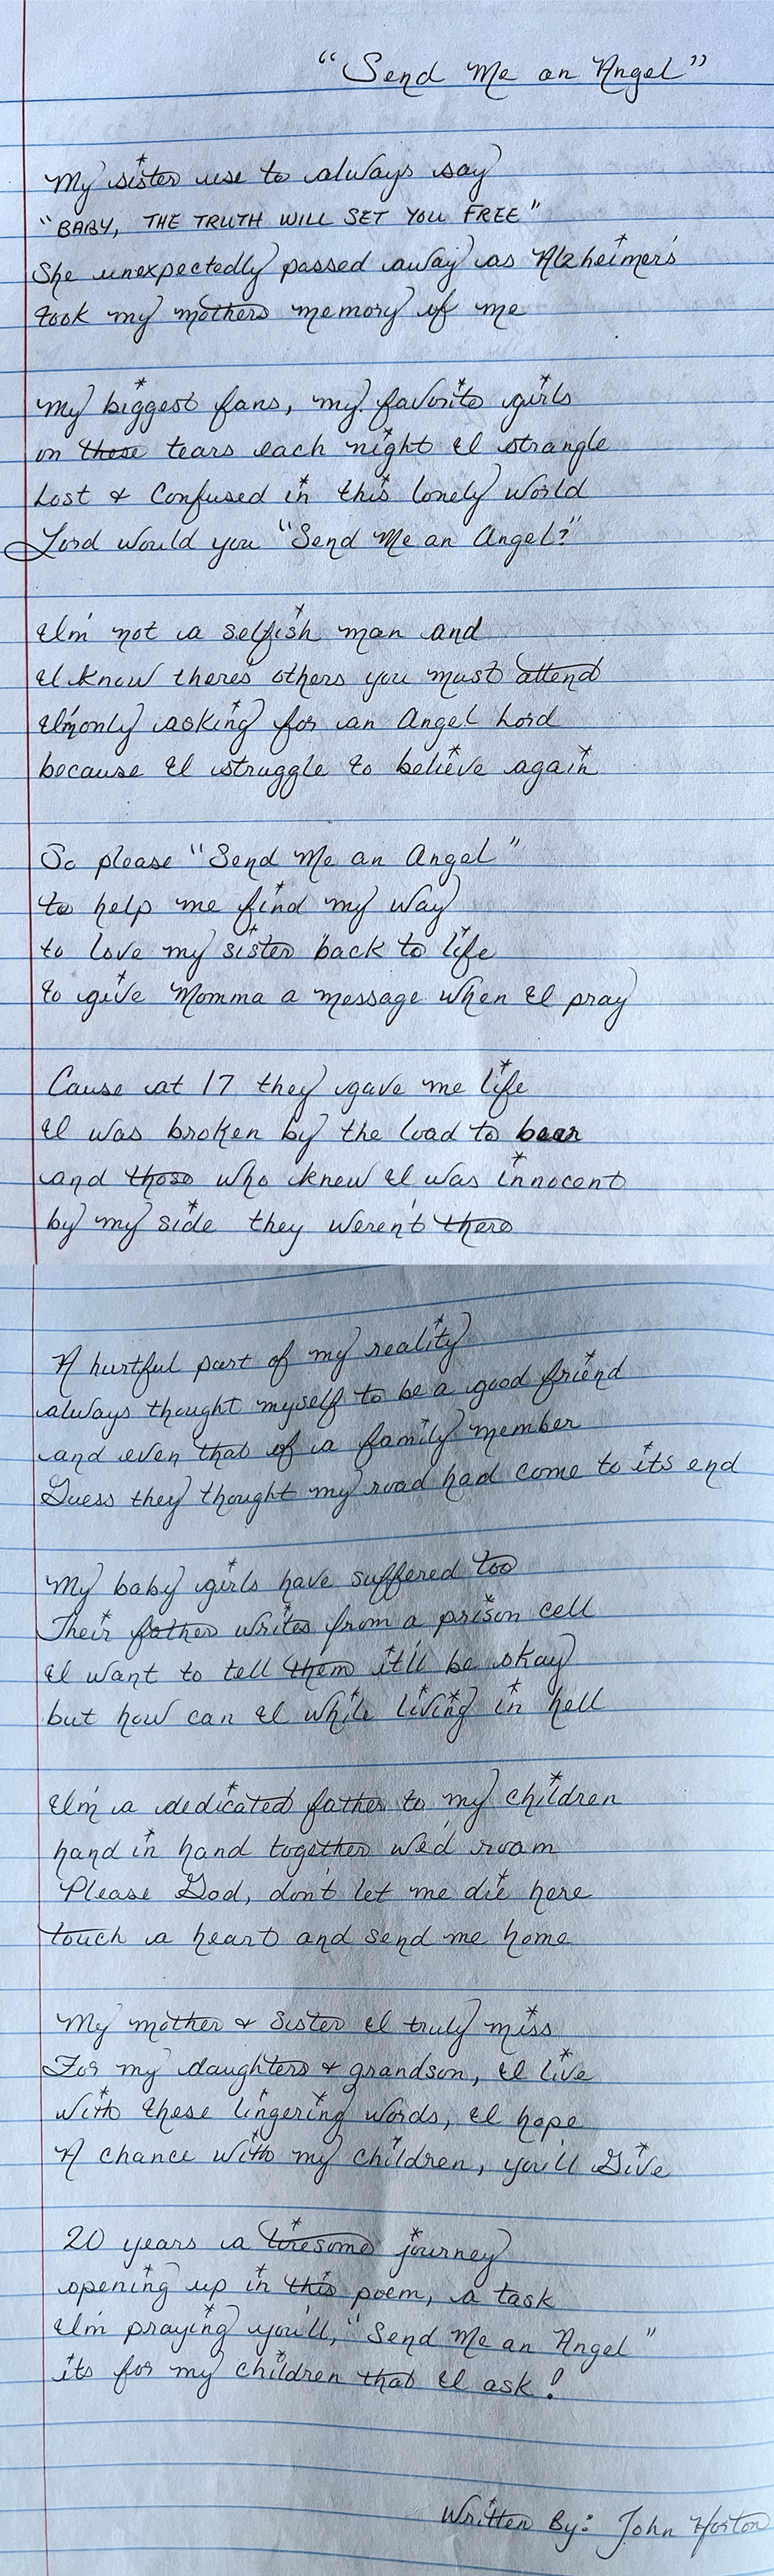 "Send Me an Angel"
My sister use to always say
"BABY, THE TRUTH WILL SET YOU FREE"
She unexpectedly passed away as Alzheimer's
took my mothers memory of me
My biggest fans, my favorite girls
on these tears each night I strangle
Lost & Confused in this lonely World
Lord would you "Send Me an Angel?"
I'm not a selfish man and
I know there's others you must attend
I'm only asking for an Angel Lord
because I struggle to believe again
So please "Send Me an Angel"
to help me find my way
to love my sister back to life
to give Momma a message when I pray
Cause at 17 they gave me life
I was broken by the load to bear
and those who knew I was innocent
by my side they weren't there
A hurtful part of my reality
always thought myself to be a good friend
and even that of a family member
Guess they thought my road had come to its end
My baby girls have suffered too
Their father writes from a prison cell
I want to tell them it'll be okay
but how can I while living in hell
I'm a dedicated father to my children
hand in hand together we'd roam
Please God, don't let me die here
touch a heart and send me home
My mother & Sister I truly miss
For my daughters & grandson, I live
With these lingering words, I hope
A chance with my children, you'll Give
20 years a tiresome journey
opening up in this poem, a task
I'm praying you'll, "Send Me an Angel"
its for my children that I ask!
Written By: John Horton